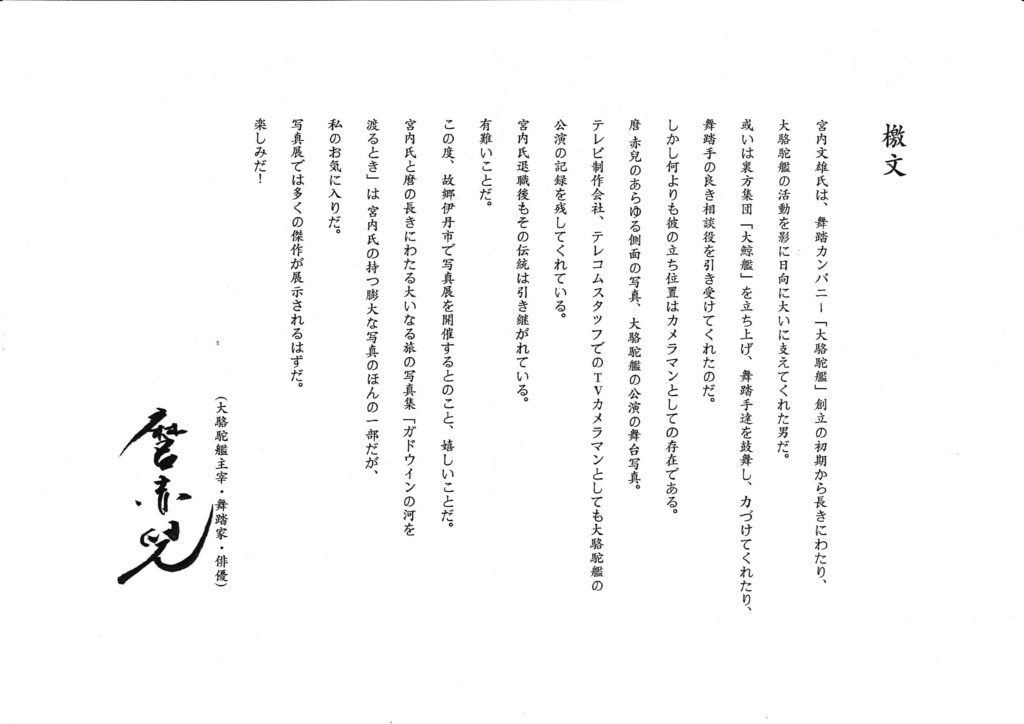 檄文
宮内文雄氏は、舞踏カンパニー「大駱駝艦」創立の初期から長きにわたり、
大駱駝艦の活動を影に日向に大いに支えてくれた男だ。
或いは裏方集団「大鯨艦」を立ち上げ、舞踏手達を鼓舞し、力づけてくれたり、
舞踏手の良き相談役を引き受けてくれたのだ。
しかし何よりも彼の立ち位置はカメラマンとしての存在である。
麿 赤兒のあらゆる側面の写真、大駱駝艦の公演の舞台写真。
テレビ制作会社、テレコムスタッフでのTVカメラマンとしても大駱駝艦の
公演の記録を残してくれている。
宮内氏退職後もその伝統は引き継がれている。
有難いことだ。
この度、故郷伊丹市で写真展を開催するとのこと、嬉しいことだ。
宮内氏と麿の長きにわたる大いなる旅の写真集「ガドウインの河を
渡るとき」は 宮内氏の持つ膨大な写真のほんの一部だが、
私のお気に入りだ。
写真展では多くの傑作が展示されるはずだ。
楽しみだ！
(大駱駝艦主宰・舞踏家・俳優)
麿赤兒